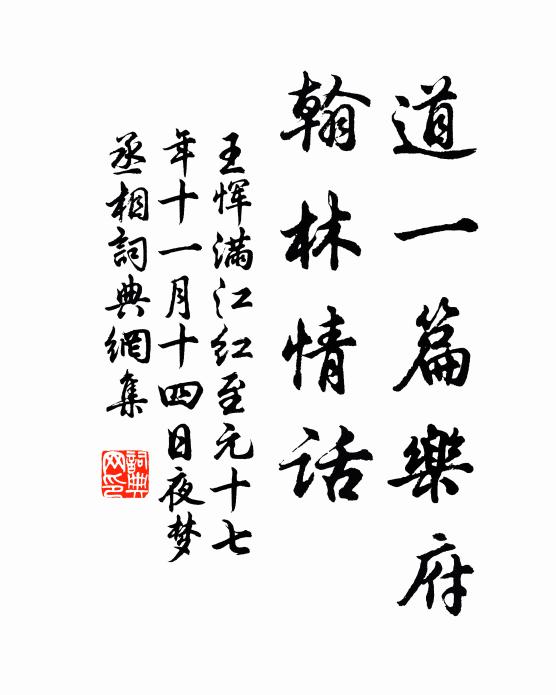 道一篇樂府
翰林情话
王恽滿江红至元十七
年十一月十四日夜梦
丞相詞典網集
詞典
网印